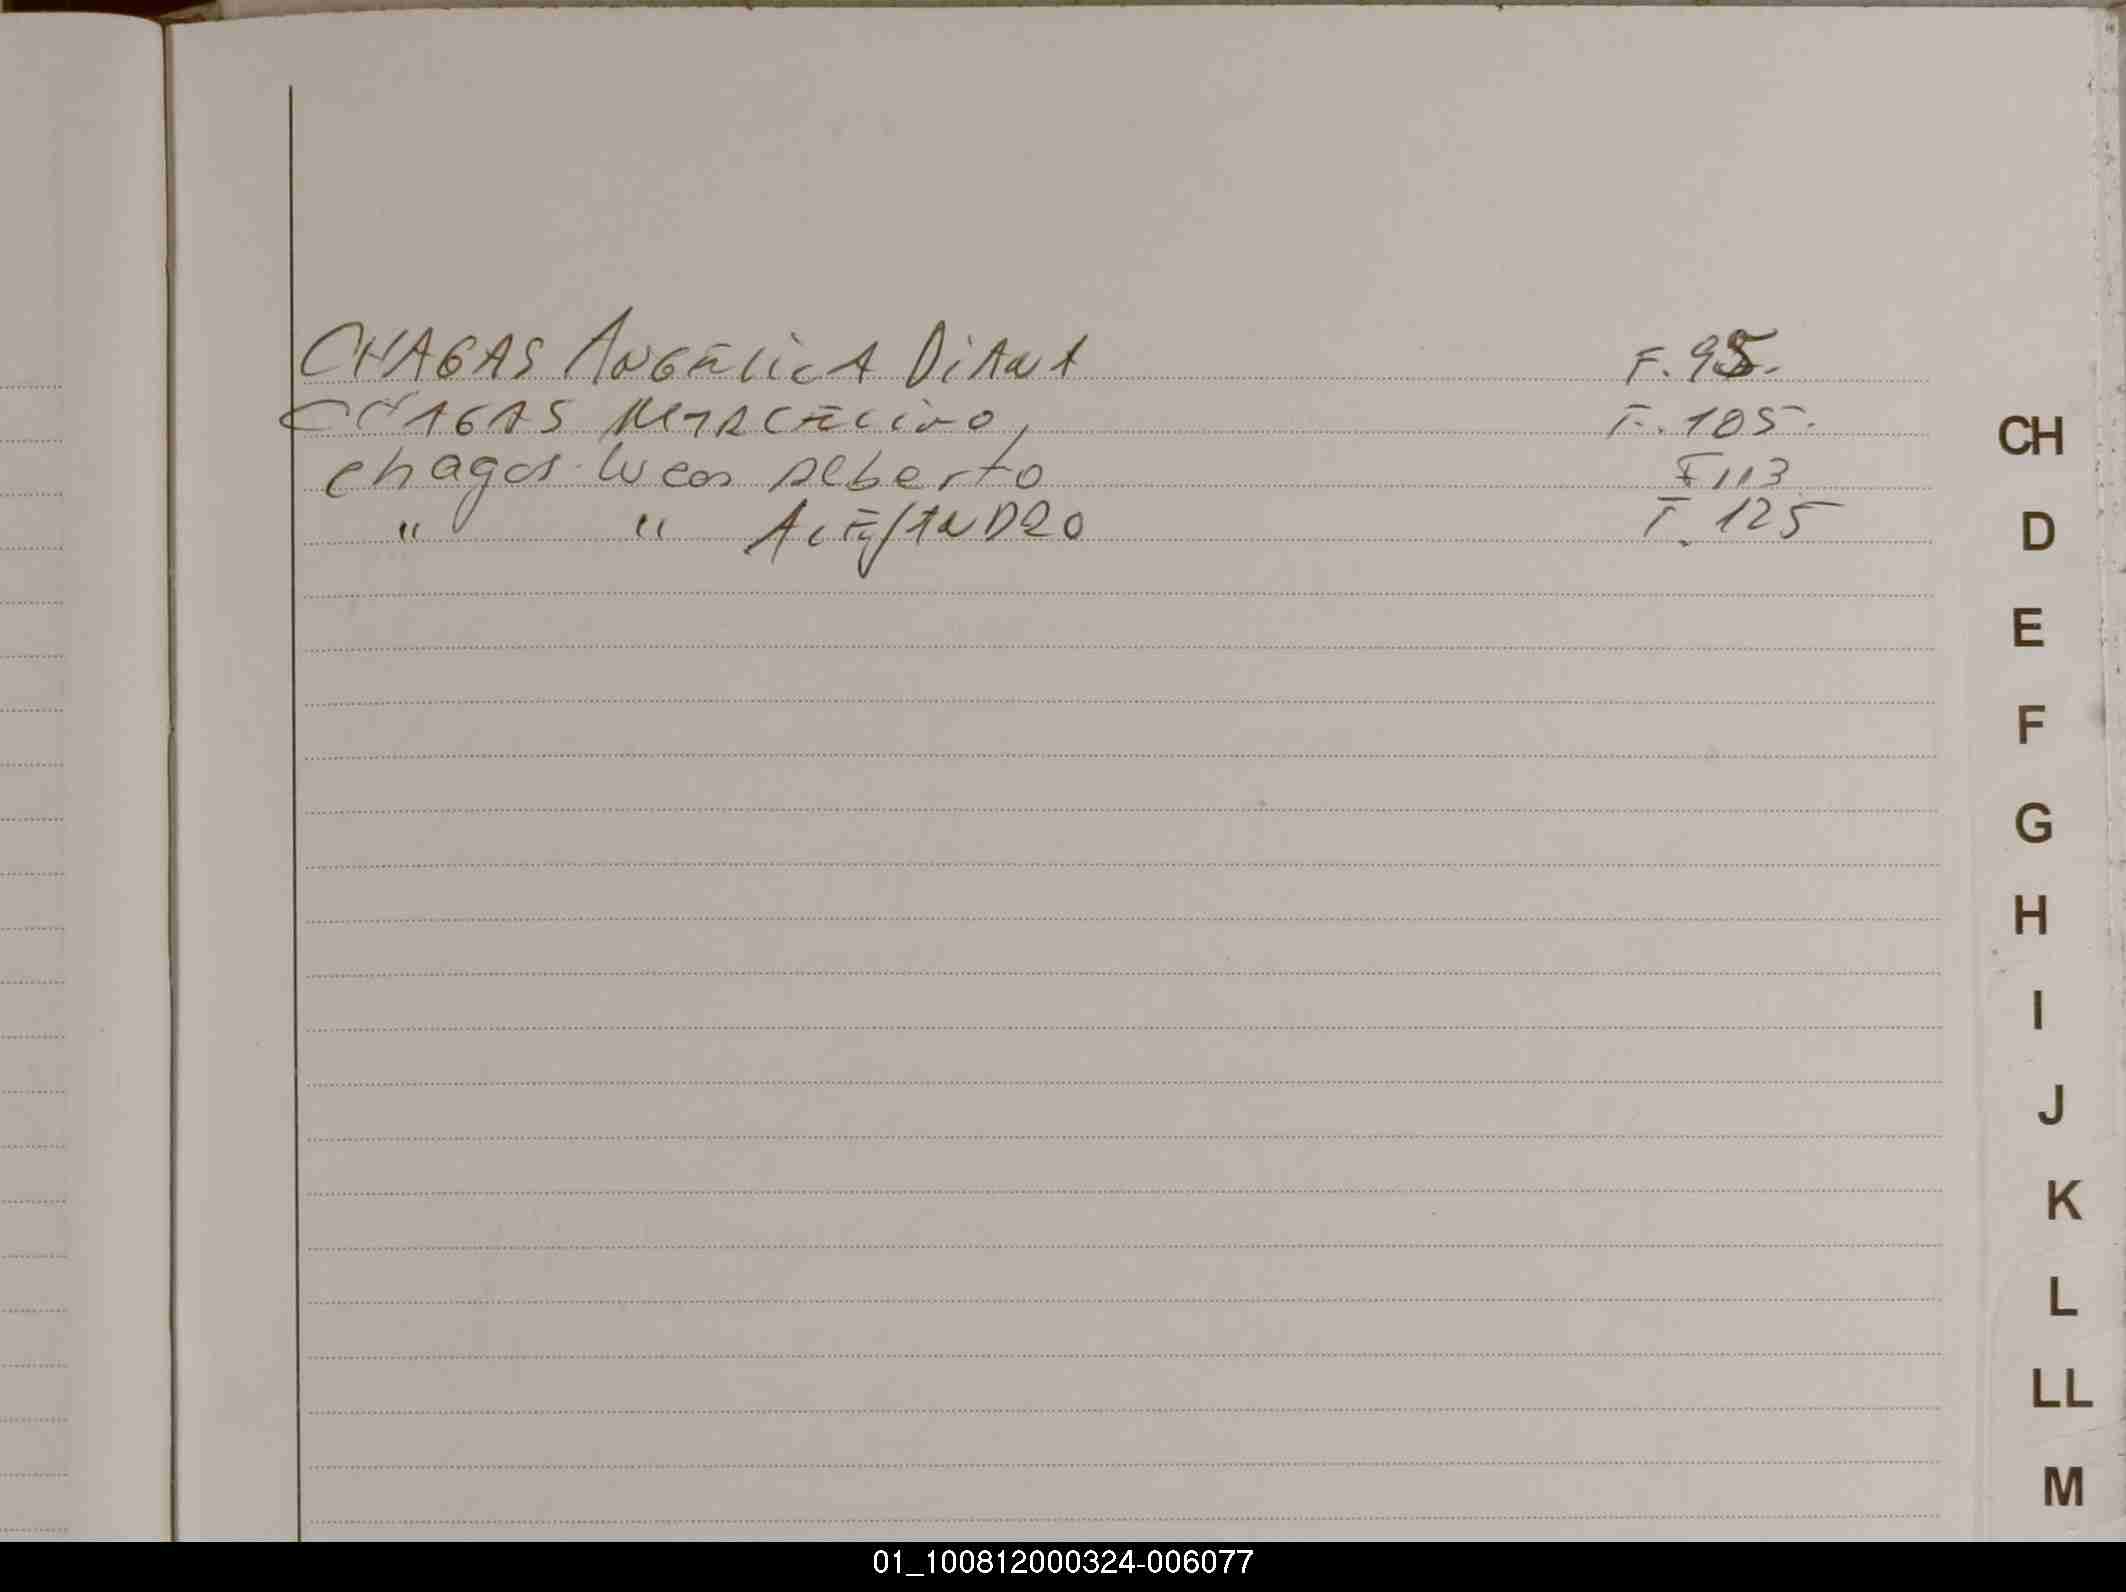 CHAGAS ANGELICA DIANA F. 95.
CHAGAS MARCELINO, F. 105.
Chagas Lucas Alberto F 113
" " ALEJANDRO F. 125
CH
D
E
F
G
H
I
J
K
L
LL
M
01_100812000324-006077